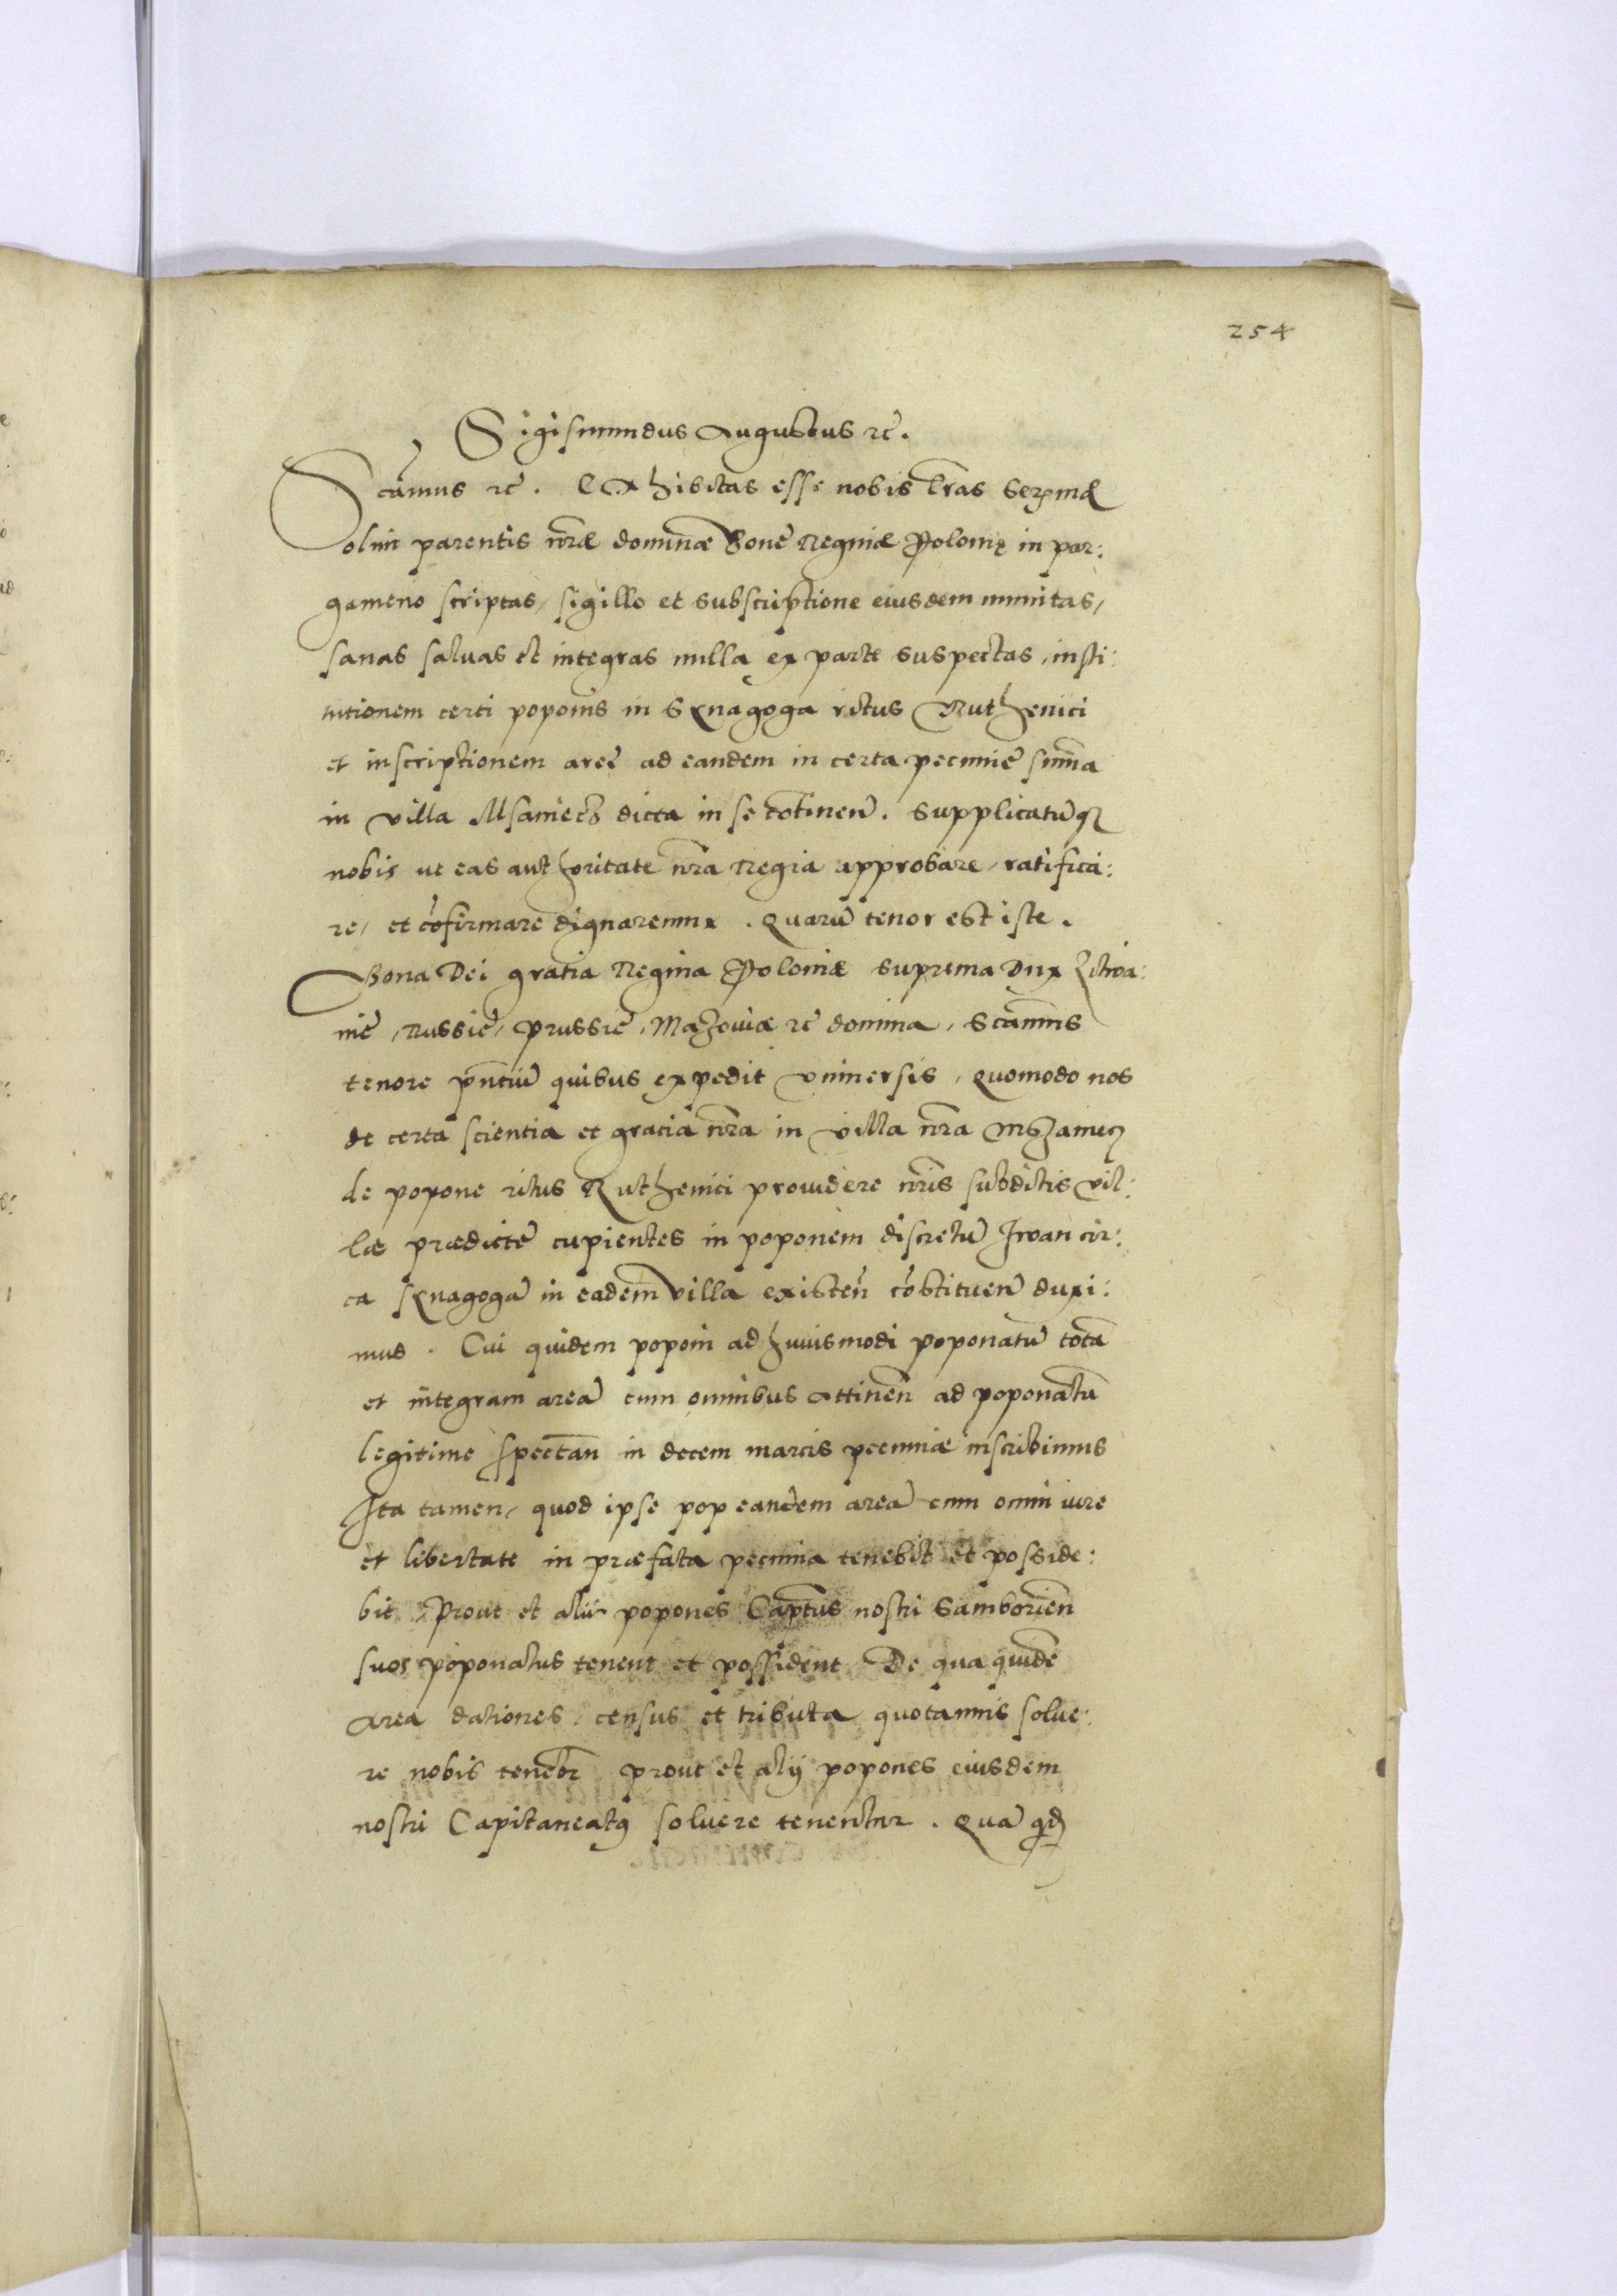 254
Sigismundus Augustus rc̃.
Scãmus rc̃. Exhibitas esse nobis lr̃as Sermæ
olim parentis nr̃æ dominæ Bonæ Reginæ Polonię in par:
gameno scriptas, sigillo et subscriptione eiusdem munitas,
sanas saluas et integras nulla ex parte suspectas, insti:
tutionem certi poponis in Synagoga ritus Ruthenici
et inscriptionem areę ad eandem in certa pecunię sum̃a
in villa Msaniecz dicta in se cõtinen̄. Supplicatũq
nobis ut eas authoritate nr̃a Regia approbare, ratifica:
re, et cõfirmare dignaremur. Quarũ tenor est iste.
Bona Dei gratia Regina Poloniæ suprema Dux Litwa:
nię, Russię, Prussię, Mazouiæ rc̃ domina, Scãmus
tenore pñtiũ quibus expedit vniuersis, quomodo nos
de certa scientia et gracia nr̃a in villa nr̃a Mszaniecz
de popone ritus Ruthenici prouidere nr̃is subditis vil:
læ prædictę cupientes in poponem discretũ Iwan cir:
ca synagogã in eadem villa existeñ cõstituen̄ duxi:
mus. Cui quidem poponi ad huiusmodi poponatũ totã
et integram areã cum omnibus attinen̄ ad poponatũ
legitime spectan̄ in decem marcis pecuniæ inscribimus
Ita tamen, quod ipse pop eandem areã cum omni iure
et libertate in præfata pecunia tenebit et posside:
bit, Prout et alii popones Captũs nostri Samborien̄
suos poponatus tenent et possident De qua quidẽ
Area dationes, census et tributa quotannis solue:
re nobis tenebr̃ prout et alij popones eiusdem
nostri Capitaneatus soluere tenentur. Quã qd